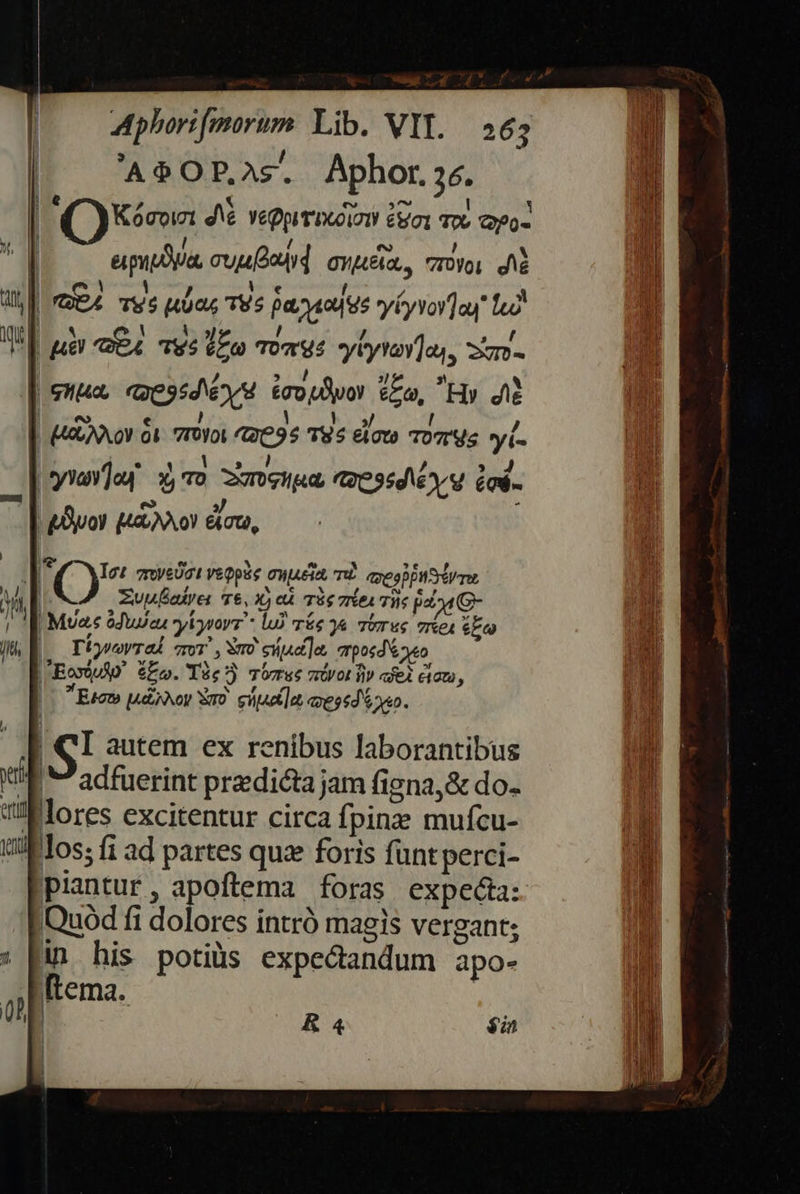 Aphoriſmorum Lib. VII. 263
ἈΦΟΡ.λϛ΄. Aphor. 36.
Ὁκόσοισι δὲ νεφριτικοῖσιν ἐοῦσι τὰ προ-
ειρημένα συμβαίνῃ σημεῖα, πόνοι δὲ
περὶ τοὺς μύας τοὺς ῥαχιαίους γίγνονται· ἢν
μὲν περὶ τοὺς ἔξω τόπους γίγνωνται, ἀπό-
στημα προσδέχου ἐσόμενον ἔξω, Ἢν δὲ
μᾶλλον οἱ πόνοι πρὸς τοὺς εἴσω τόπους γί-
γνωνται καὶ τὸ ἀπόστημα προσδέχου ἐσό-
μενον μᾶλλον εἴσω,
Οἷσι πονεῦσι νεφροὺς σημεῖα τὰ προῤῥηθέντα
Συμβαίνει τε, καὶ αἱ τὰς πέρι τῆς ῥάχιος
Μύας ὀδύναι γίγνοντ᾽· ἢν τὲς γε τόπους πέρι ἔξω
Γίγνωνταί ποτ᾽, ἀπὸ στήματα προσδέχεο
Ἐσόμεν᾽ ἔξω. Τὲς δὲ τόπους πόνοι ἢν περὶ εἴσω,
Εἴσω μᾶλλον ἀπὸ στήματα προσδέχεο.
SI autem ex renibus laborantibus
adfuerint prædicta jam ſigna, & do-
lores excitentur circa ſpinæ muſcu-
los; ſi ad partes quæ foris ſunt perci-
piantur, apoſtema foras expecta:
Quòd ſi dolores intrò magis vergant;
in his potiùs expectandum apo-
ſtema.
R 4 Sin